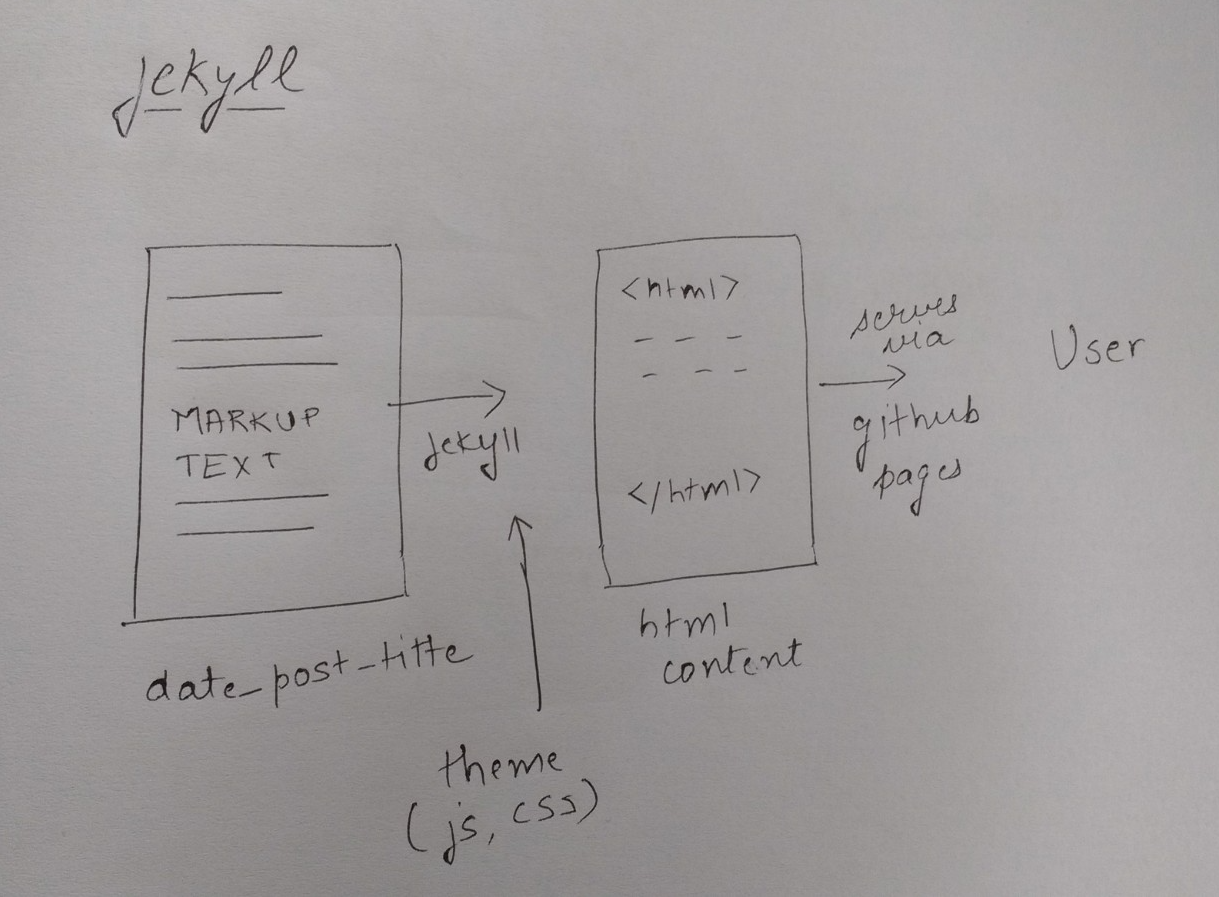 Jekyll
MARKUP
TEXT
date_post-title
Jekyll
theme
(js, css)
<html>
</html>
html
content
serves
via
github
pages
User